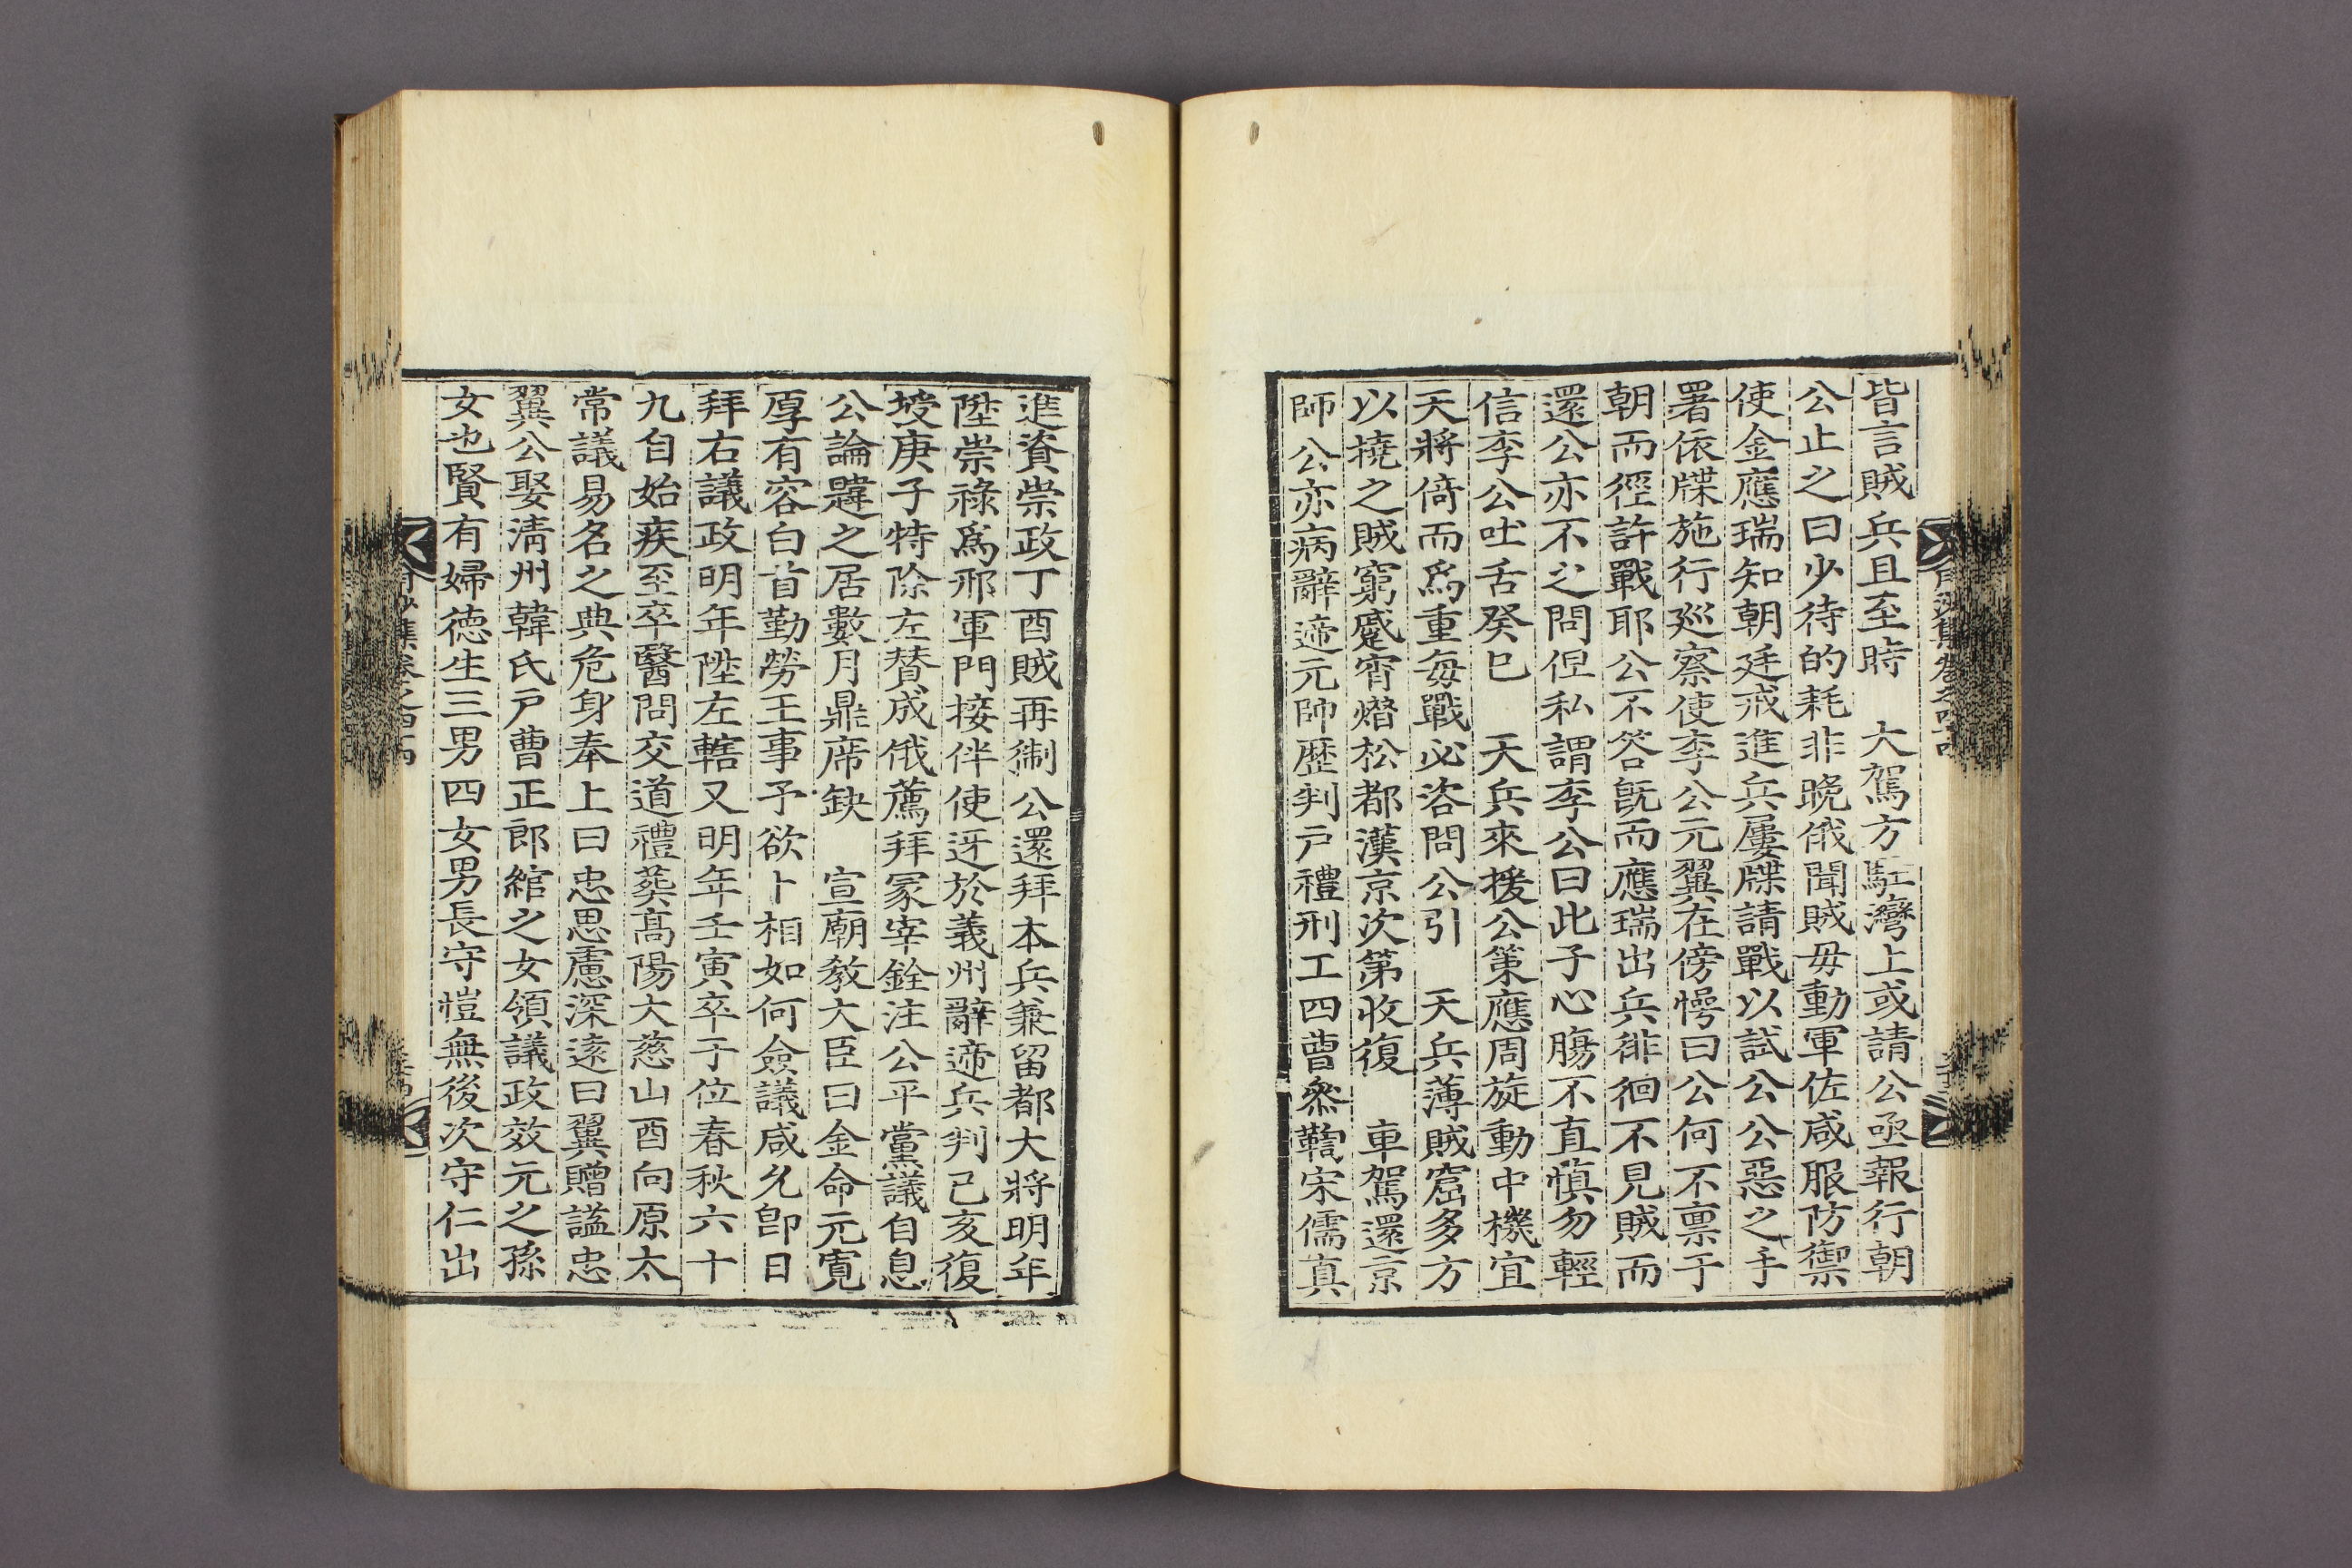 皆言賊兵且至時　大駕方駐灣上或請公亟報行朝
公止之曰少待的耗非晚俄聞賊毋動軍佐咸服防禦
使金應瑞知朝廷戒進兵屢牒請戰以試公公惡之手
署依牒施行巡察使李公元翼在傍愕曰公何不禀于
朝而徑許戰耶公不答旣而應瑞出兵徘徊不見賊而
還公亦不之問但私謂李公曰此子心膓不直愼勿輕
信李公吐舌癸巳　天兵來援公策應周旋動中機宜
天將倚而爲重每戰必咨問公引　天兵薄賊窟多方
以撓之賊窮蹙宵熸松都漢京次第收復　車駕還京
師公亦病辭遞元帥歷判戶禮刑工四曹叅鞫宋儒真
進資崇政丁酉賊再猘公還拜本兵兼留都大將明年
陞崇祿爲邢軍門接伴使迓於義州辭遞兵判己亥復
授庚子特除左贊成俄薦拜冢宰銓注公平黨議自息
公論韙之居數月鼎席缺　宣廟教大臣曰金命元寬
厚有容白首勤勞王事予欲卜相如何僉議咸允卽日
拜右議政明年陞左轄又明年壬寅卒于位春秋六十
九自始疾至卒醫問交道禮葬高陽大慈山酉向原太
常議易名之典危身奉上曰忠思慮深遠曰翼贈謚忠
翼公娶淸州韓氏戶曹正郎綰之女領議政效元之孫
女也賢有婦德生三男四女男長守愷無後次守仁出